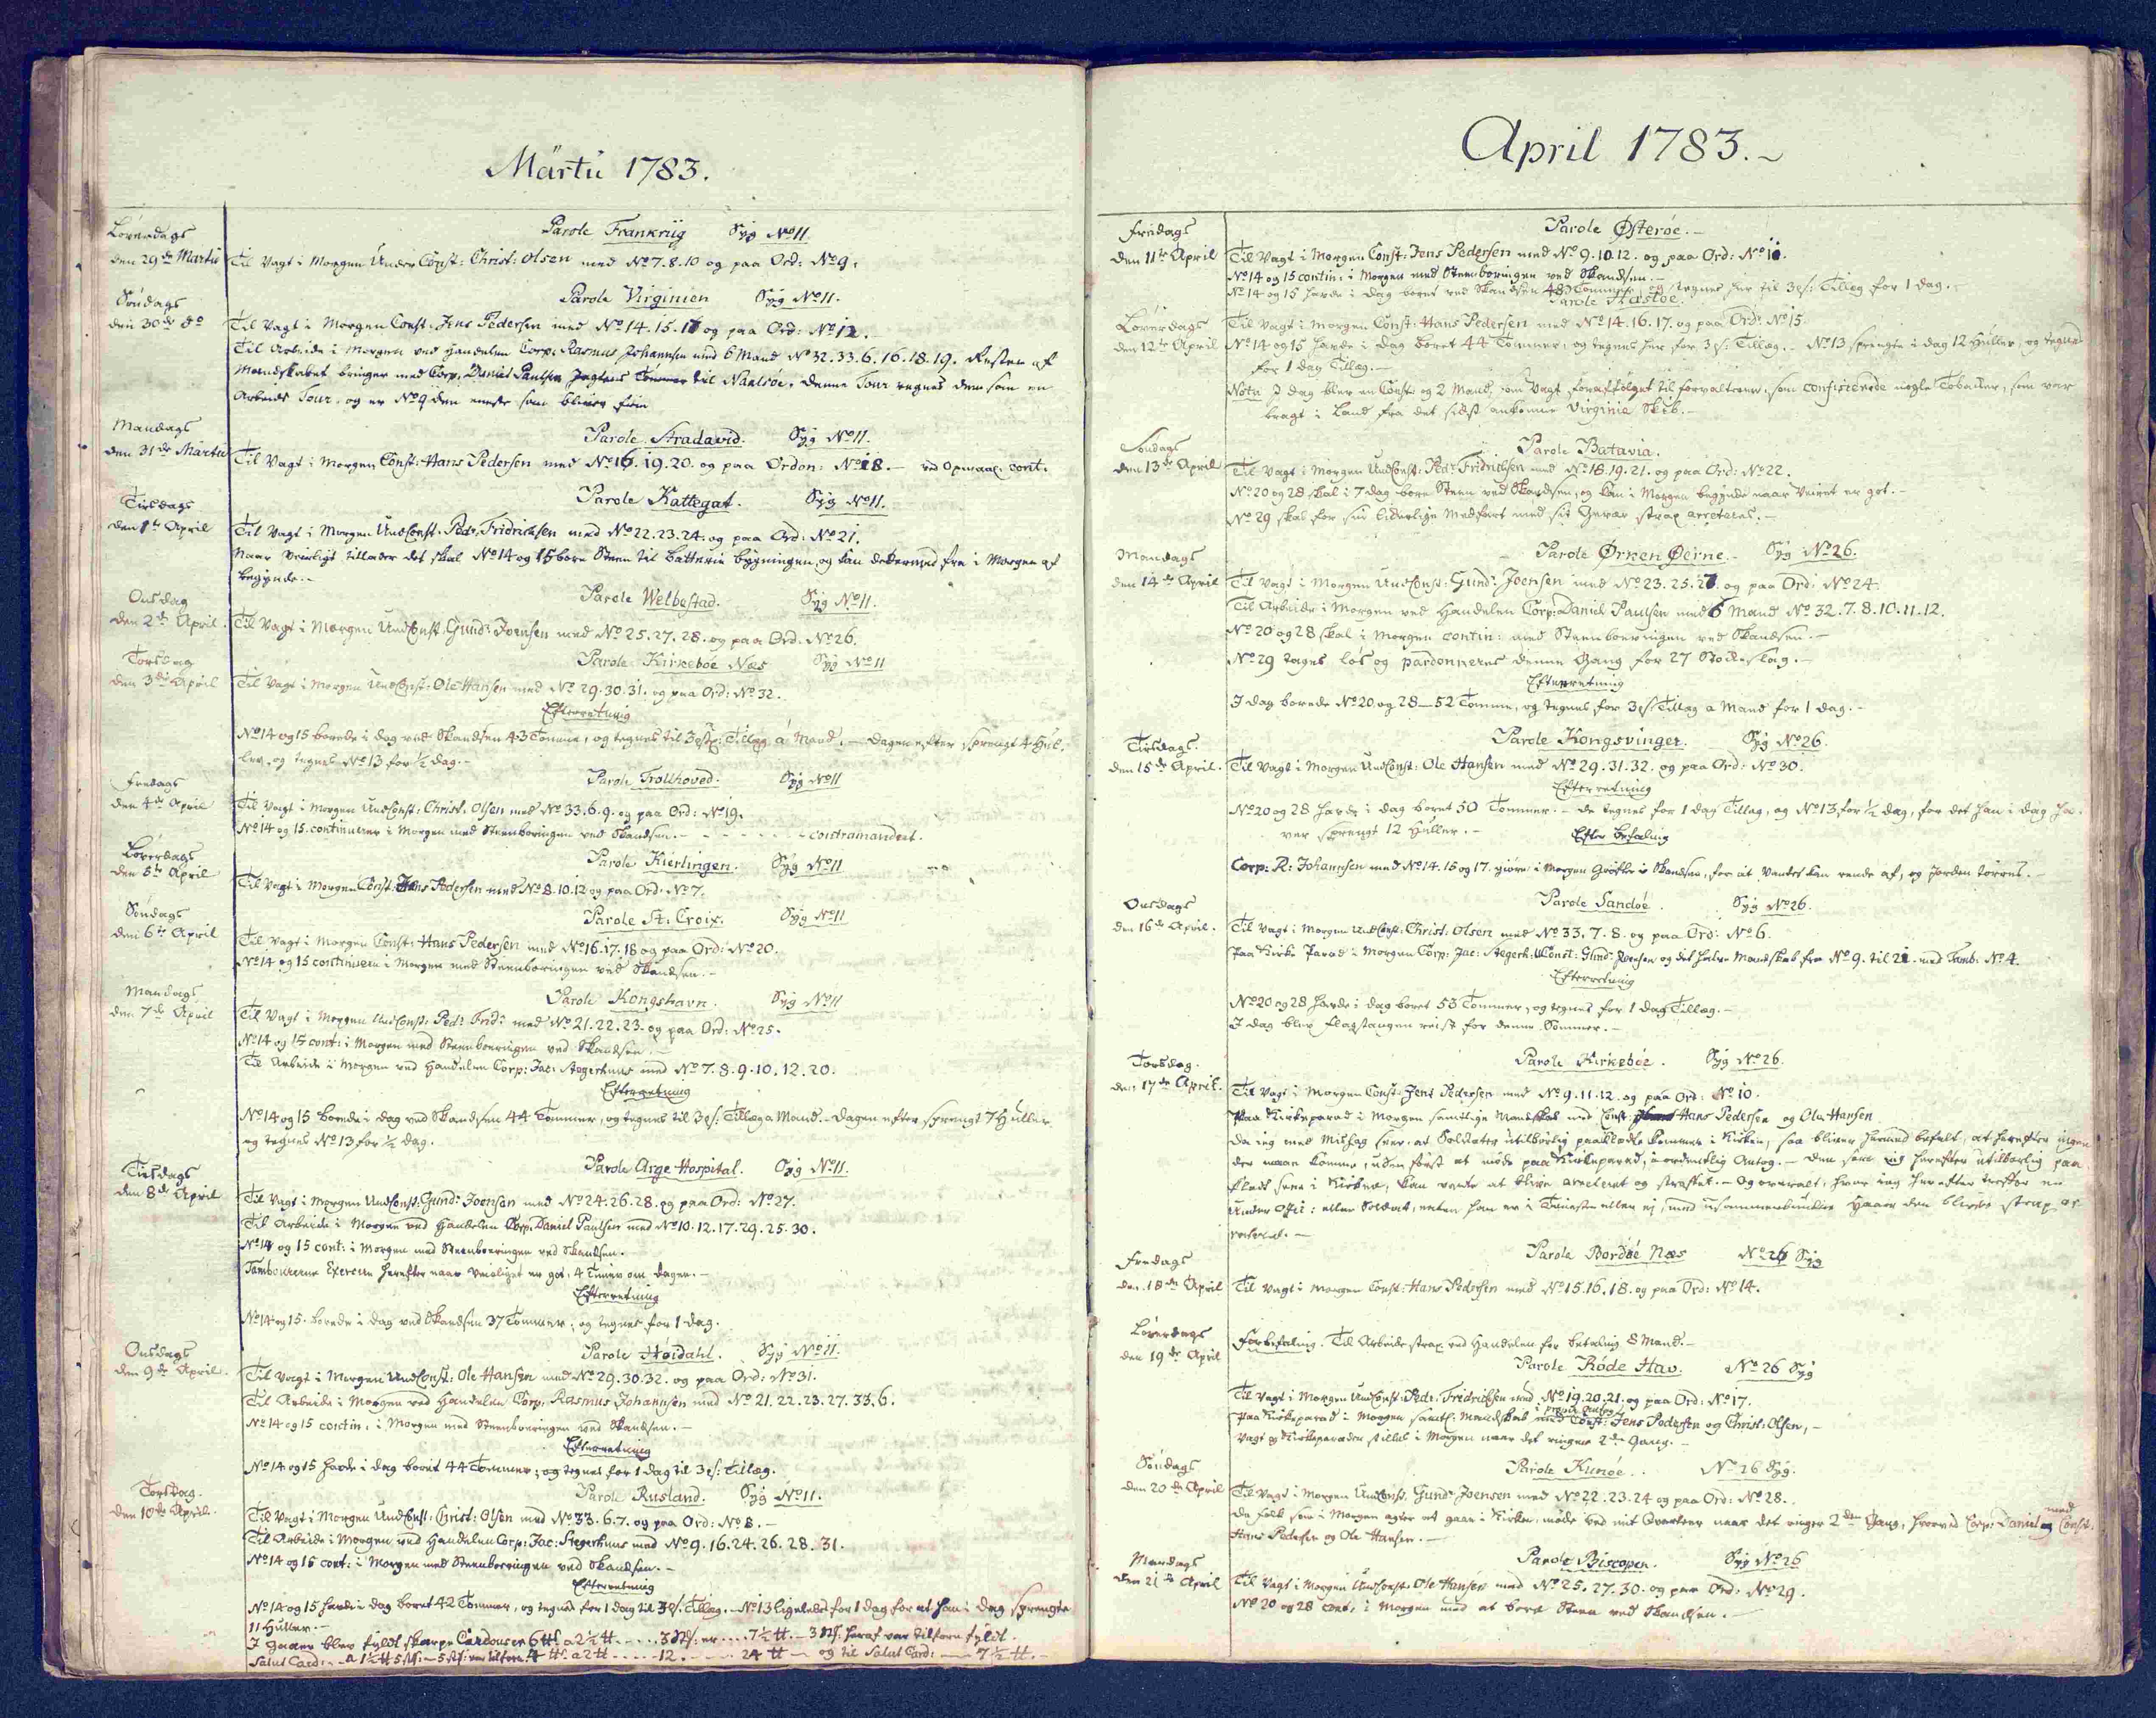 Martii 1783.
Löverdags
den 29de Martii
Parole Frankriig Syg No 11.
Til Vagt i Morgen Under Const: Christ: Olsen med No 7. 8. 10 og paa Ord: No 9.
Söndags
den 30de do
Parole Virginien Syg No 11.
Til Vagt i Morgen Const: Jens Pedersen med No 14. 15. 17 og paa Ord: No 12.
Til Arbeide i Morgen ved Handelen Corp: Rasmus Johannsen med 6 Mand No 32. 33. 6. 16. 18. 19. Resten af
Mandskabet bringer med Corp: Daniel Paulsen Jagtens Tömmer til Naalsöe. Denne Tour regnes dem som en
Arbeids Tour, og er No 9 den eneste som bliver friie
Mandags
den 31de Martii
Parole Stradavid. Syg No 11.
Til Vagt i Morgen Const: Hans Pedersen med No 16. 19. 20. og paa Ordon: No 18. — ved Opmaal: cont.
Tirsdags
den 1te April
Parole Kattegat. Syg No 11.
Til Vagt i Morgen UndConst: Pedr Fridrichsen med No 22. 23. 24. og paa Ord: No 21.
Naar Veirligt tillader det skal No 14 og 15 bore Steen til Batterie bygningen, og kan dermed fra i Morgen af
begynde. —
Onsdag
den 2de April.
Parole Welbestad. Syg No 11.
Til Vagt i Morgen UndConst: Gund: Joensen med No 25. 27. 28. og paa Ord. No 26.
Torsdag
den 3die April
Parole Kirkeböe Næs Syg No 11
Til Vagt i Morgen UndConst: Ole Hansen med No 29. 30. 31. og paa Ord: No 32.
Efterretnig
No 14 og 15 borede i dag ved Skandsen 43 Tomme, og tegnes til 3 s: Tillæg á Mand. — Dagen efter sprengt 4 Hul-
ler, og tegnes No 13 for ½ dag. —
Fredags
den 4de April
Parole Trollhoved. Syg No 11
Til Vagt i Morgen UndConst: Christ. Olsen med No 33. 6. 9. og paa Ord: No 19.
No 14 og 15. continuerer i Morgen med Steenboringen ved Skandsen. — contramandert.
Löverdags
den 5te April
Parole Kierlingen. Syg No 11
Til Vagt i Morgen Const: Jens Pedersen med No 8. 10. 12 og paa Ord. No 7.
Söndags
den 6te April
Parole St: Croix. Syg No 11
Til Vagt i Morgen Const: Hans Pedersen med No 16. 17. 18 og paa Ord: No 20.
No 14 og 15 continuera i Morgen med Steenboringen ved Skandsen. —
Mandags
den 7de April
Parole Kongshavn. Syg No 11
Til Vagt i Morgen UndConst: Pedr Frid: med No 21. 22. 23. og paa Ord: No 25.
No 14 og 15 cont: i Morgen med Steenboringen ved Skandsen. —
Til Arbeide i Morgen ved Handelen Corp: Jac: Stegerhuus med No 7. 8. 9. 10. 12. 20.
Efterretnig
No 14 og 15 borede i dag ved Skandsen 44 Tommer, og tegnes til 3 s: Tillæg a Mand. — Dagen efter sprengt 7 Huller
og tegnes No 13 for ½ dag.
Tirsdags
den 8de April
Parole Arge Hospital. Syg No 11.
Til Vagt i Morgen UndConst: Gund: Joensen med No 24. 26. 28. og paa Ord: No 27.
Til Arbeide i Morgen ved Handelen Corp: Daniel Paulsen med No 10. 12. 17. 29. 25. 30.
No 14 og 15 cont: i Morgen med Steenboringen ved Skandsen.
Tambourerne Exercere herefter naar Veirliget er got, 4 Timer om dagen. —
Efterretnig
No 14 og 15. borede i dag ved Skandsen 37 Tommer, og tegnes for 1 dag.
Onsdags
den 9de April.
Parole Höidahl. Syg No 11.
Til Vagt i Morgen UndConst: Ole Hansen med No 29. 30. 32. og paa Ord: No 31.
Til Arbeide i Morgen ved Handelen Corp: Rasmus Johannsen med No 21. 22. 23. 27. 33. 6.
No 14 og 15 contin: i Morgen med Steenboringen ved Skandsen. —
Efterretnig
No 14 og 15 havde i dag boret 44 Tommer, og tegnes for 1 dag til 3 s: Tillæg.
Torsdag.
den 10de April.
Parole Rusland. Syg No 11.
Til Vagt i Morgen UndConst: Christ: Olsen med No 33. 6. 7. og paa Ord: No 8. —
Til Arbeide i Morgen ved Handelen Corp: Jac: Stegerhuus med No 9. 16. 24. 26. 28. 31.
No 14 og 15 cont: i Morgen med Steenboringen ved Skandsen. —
Efterretnig
No 14 og 15 havde i dag boret 42 Tommer, og tegnes for 1 dag til 3 s: Tillæg. — No 13 ligeledes for 1 dag for at han i dag sprengte
11 Huller. —
I Gaar blev fyldt skarpe Cardouser 6 tt: a 2½ tt 3 st: er 7½ tt. — 3 st: heraf var tilforn fyldt.
Salut Card: a 1½ tt 5 st: — 5 st: var tilforn. 4 tt: a 2 tt 12. 24 tt — og til Salut Card: — 7½ tt. —
April 1783.
Fredags
den 11te April
Parole Österöe. —
Til Vagt i Morgen Const: Jens Pedersen med No 9. 10. 12. og paa Ord: No 11.
No 14 og 15 contin: i Morgen med Steenboringen ved Skandsen. —
No 14 og 15 havde i dag boret ved Skandsen 48 Tommer, og tegnes her til 3 s: Tillæg for 1 dag. —
Löverdags
den 12te April
Parole Hæstöe.
Til Vagt i Morgen Const: Hans Pedersen med No 14. 16. 17. og paa Ord: No 15.
No 14 og 15 havde i dag boret 44 Tommer, og tegnes her for 3 s: Tillæg. — No 13 sprengte i dag 12 Huller, og tegnes
for 1 dag Tillæg. —
Nota I dag blev en Const: og 2 Mand, som Vagt, forafsölget til forvalteren, som confisterede nogle Tobakker, som var
bragt i Land fra det sidst ankomne Virginie Skib. —
Söndags
den 13de April
Parole Batavia.
Til Vagt i Morgen UndConst: Pedr Fridrichsen med No 18. 19. 21. og paa Ord: No 22.
No 20 og 28 skal i 7 dag bore Steen ved Skandsen, og kan i Morgen begynde naar Veiret er got. —
No 29 skal for sin liderlige Medfart med sit Gevær strax arreteres. —
Mandags
den 14de April
Parole Örken Öerne. — Syg No 26.
Til Vagt i Morgen UndConst: Gund: Joensen med No 23. 25. 27. og paa Ord: No 24.
Til Arbeide i Morgen ved Handelen Corp: Daniel Paulsen med 6 Mand No 32. 7. 8. 10. 11. 12.
No 20 og 28 skal i Morgen contin: med Steenboeringen ved Skandsen. —
No 29 tages lös og pardonneres denne Gang for 27 Stokeslag. —
Efterretning
I dag borede No 20 og 28 — 52 Tomme, og tegnes for 3 s: Tillæg a Mand for 1 dag. —
Tirsdags.
den 15de April.
Parole Kongsvinger. Syg No 26.
Til Vagt i Morgen UndConst: Ole Hansen med No 29. 31. 32. og paa Ord: No 30.
Efterretning
No 20 og 28 havde i dag boret 50 Tommer. — de tegnes for 1 dag Tillæg, og No 13 for ½ dag, for det han i dag ha-
ver sprengt 12 Huller. —
Efter befaling
Corp: R: Johannsen med No 14. 15 og 17. giöre i Morgen Gröfter i Skandsen, for at Vandet kan rende af, og Jorden törres. —
Onsdags
den 16de April.
Parole Sandöe. Syg No 26.
Til Vagt i Morgen UndConst: Christ: Olsen med No 33. 7. 8. og paa Ord: No 6.
Paa Kirke Parad i Morgen Corp: Jac: Stegerh: UConst: Gund: Joensen og det halve Mandskab fra No 9. til 21. med Tamb: No 4.
Efterretnig
No 20 og 28 havde i dag boret 53 Tommer, og tegnes for 1 dag Tillæg. —
I dag blev Flagstangen reist for denne Sommer. —
Torsdag.
den 17de April.
Parole Kirkeböe. Syg No 26.
Til Vagt i Morgen Const: Jens Pedersen med No 9. 11. 12. og paa Ord: No 10.
Paa Kirkeparad i Morgen samtlige Mandskab med Const: Hans Pedersen og Ole Hansen
Da ieg med Mishag seer, at Soldater utilbörlig paaklædte kommer i Kirken, saa bliver hermed befalt, at herefter ingen
der maae komme, uden först at möde paa Kirkeparad, i ordentlig Antog. — Den som sig herefter utilbörlig paa
klædt seer i Kirken, kan vente at blive arreteret og straffet. — Og overalt, hvor ieg herefter treffer en
Under Offic: eller Soldat, enten han er i Tieneste eller ei, med usammenbunden Haar, den bliver strax ar-
reteret. —
Fredags
den 18de April
Parole Bordöe Næs No 26 Syg
Til Vagt i Morgen Const: Hans Pedersen med No 15. 16. 18. og paa Ord: No 14.
Löverdags
den 19de April
Forbefaling. Til Arbeide strax ved Handelen for betaling 8 Mand. —
Parole Röde Hav. No 26 Syg
Til Vagt i Morgen UndConst: Pedr. Fredrichsen med No 19. 20. 21. og paa Ord: No 17.
Paa Kirkeparad i Morgen samtl: Mandskab med Const: Jens Pedersen og Christ: Olsen, —
Vagt og Kirkeparaden stilles i Morgen naar det ringer 2de Gang. —
Söndags
den 20de April
Parole Kunöe. No 26 Syg.
Til Vagt i Morgen UndConst: Gund: Joensen med No 22. 23. 24 og paa Ord: No 28.
De folk som i Morgen agter at gaae i Kirken, möde ved mit Qvarteer naar det ringer 2den Gang, hvorved Corp: Daniel med Const.
Hans Pedersen og Ole Hansen. —
Mandags
den 21de April
Parole Biscopen. Syg No 26
Til Vagt i Morgen UndConst: Ole Hansen med No 25. 27. 30. og paa Ord: No 29.
No 20 og 28 cont: i Morgen med at bore Steen ved Skandsen. —